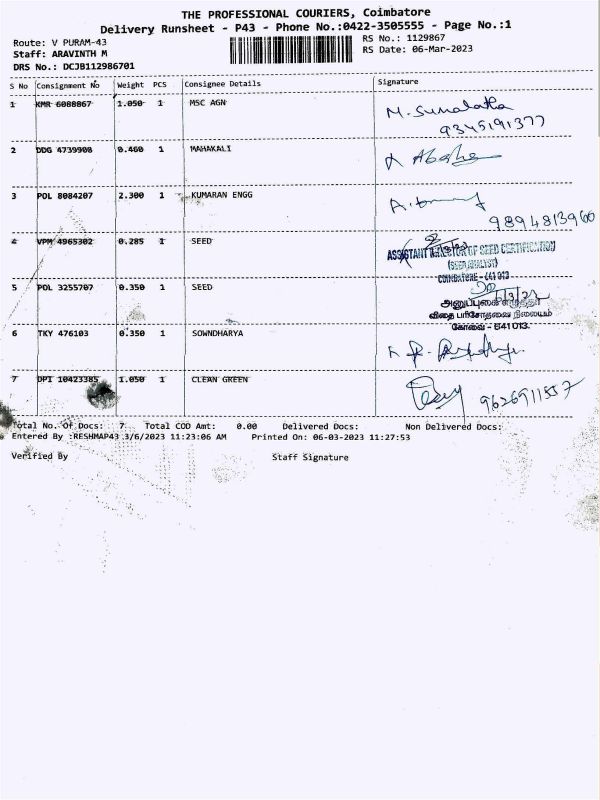 THE PROFESSIONAL COURIERS, Coimbatore
Delivery Runsheet - P43 - Phone No.:0422-3505555 - Page No.:1
Route: V PURAM-43
Staff: ARAVINTH M
DRS No.: DCJB112986701
RS No.: 1129867
RS Date: 06-Mar-2023
S No Consignment No Weight PCS Consignee Details Signature
1 KMR 6088867 1.050 1 MSC AGN M. Sumalatha
9345191377
2 DDG 4739908 0.460 1 MAHAKALI
3 POL 8084207 2.300 1 KUMARAN ENGG
9894813960
4 VPM 4965302 0.285 1 SEED ASSISTANT DIRECTOR OF SEED CERTIFICATION
(SEED ANALYST)
COIMBATORE - 641 013
5 POL 3255707 0.350 1 SEED
விதை பரிசோதனை நிலையம்
கோவை - 641 013.
6 TKY 476103 0.350 1 SOWNDHARYA
7 DPT 10423385 1.050 1 CLEAN GREEN 9626911557
Total No. Of Docs: 7 Total COD Amt: 0.00 Delivered Docs: Non Delivered Docs:
Entered By :RESHMAP43 3/6/2023 11:23:06 AM Printed On: 06-03-2023 11:27:53
Verified By Staff Signature